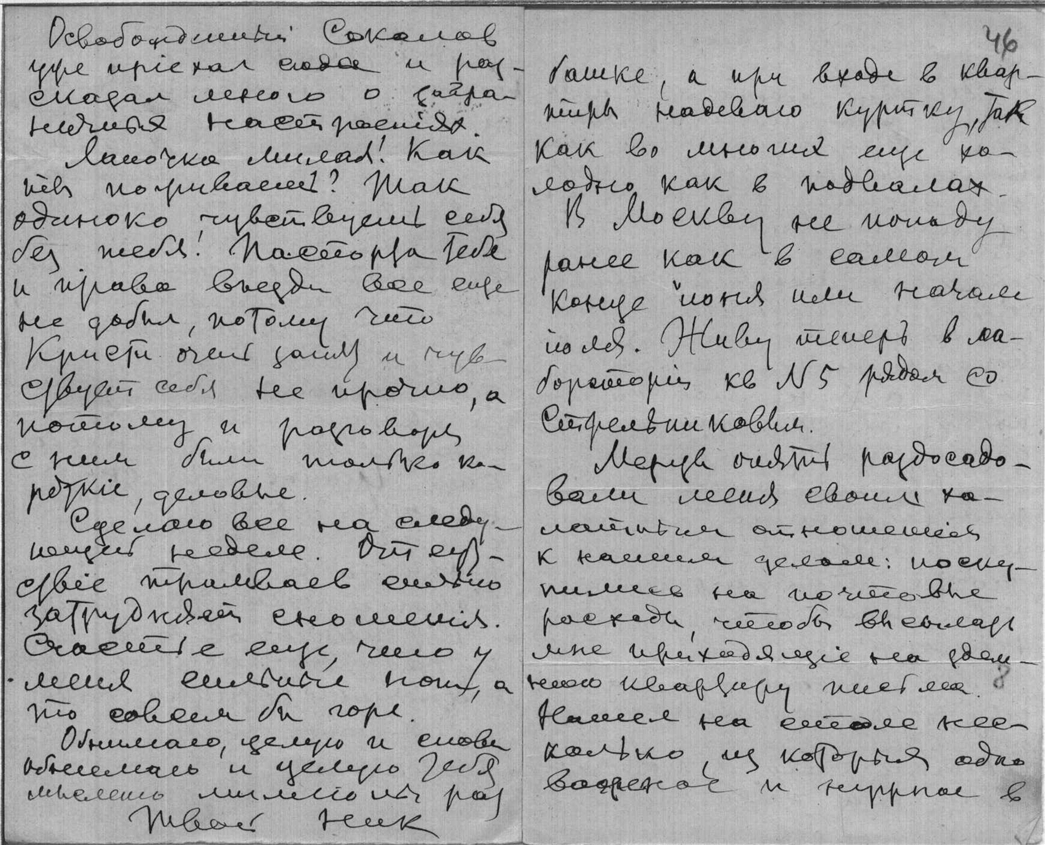 Освобожденный Соколов
уже пріехал сюда и раз-
сказал много о загра-
ничных настроеніях.
Лапочка милая! Как
ты поживаешь? Так
одиноко чувствуешь себя
без тебя! Паспорта Тебе
и права въезда все еще
не добыл, потому что
Кристи очень занят и чув-
ствует себя не прочно, а
потому и разговоры
с ним были только ко-
роткіе, деловые.
Сделаю все на следу-
ющей неделе. Отсут-
ствіе трамваев сильно
затрудняет сношенія.
Счастье еще, что у
меня сильные ноги, а
то совсем бы горе.
Обнимаю, целую и снова
обнимаю и целую Тебя
мысленно милліон раз
Твой Ник
46
башке, а при входе в квар-
тиры надеваю куртку, так
как во многих еще хо-
лодно как в подвалах.
В Москву не попаду
ранее как в самом
конце іюня или начале
іюля. Живу теперь в ла-
бораторіи кв N5 рядом со
Стрельниковым.
опять раздосадо-
вали меня своим ха-
латным отношением
к нашим делам: поску-
пились на почтовые
расходы, чтобы высылать
мне приходящіе на здеш-
нюю квартиру письма.
Нашел на столе нес-
колько, из которых одно
важное и нужное в